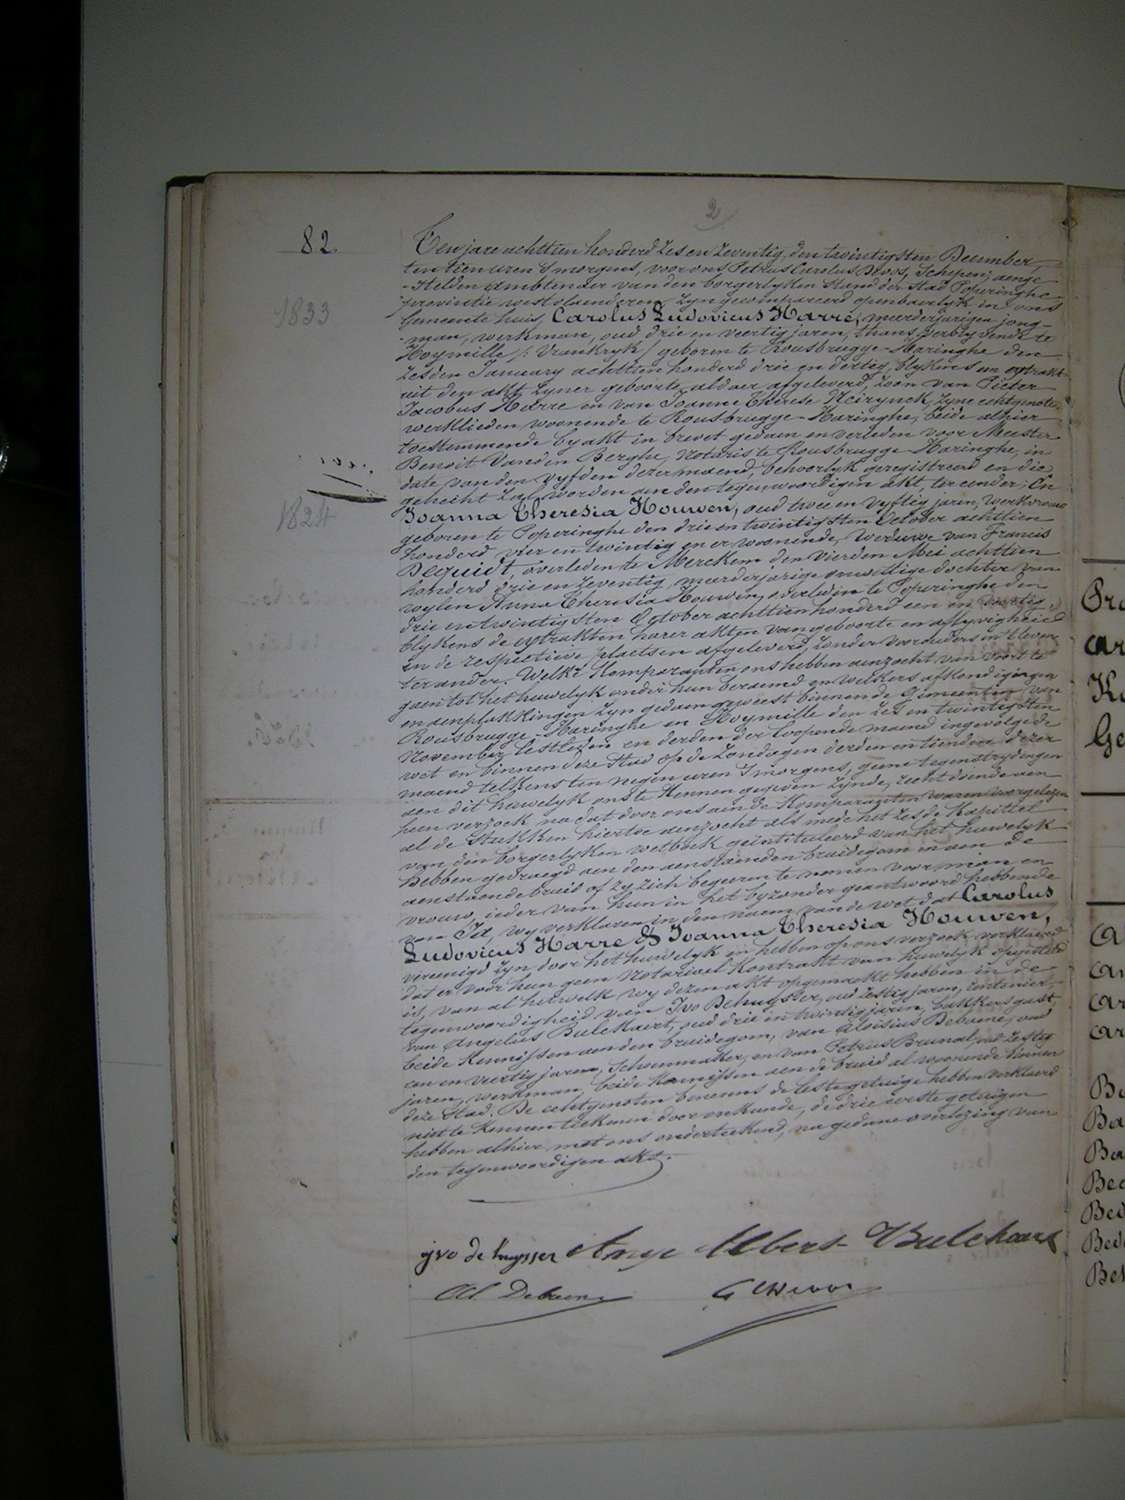 2
82.
Ten jare achttien honderd zes en zeventig, den twintigsten December
ten tien uren s'morgens, voor ons Petrus Carolus Devos, Schepen, aenge-
-stelden Ambtenaer van den borgerlyken stand der Stad Poperinghe
provintie westvlaenderen, zyn gecompareerd openbaerlyk in ons
Gemeente huis, Carolus Ludovicus Harre, meerderjarigen jong-
1833
man, werkman, oud drie en veertig jaren, thans verblyvende te
Hoymille /: Vrankryk / geboren te Rousbrugge-Haringhe den
zesden January achttien honderd drie en dertig, blykens een extrakt
uit den akt zyner geboorte aldaer afgeleverd, zoon van Pieter
Jacobus Harre en van Joanna Therese Neirynck, zyne echtgenote,
werklieden woonende te Rousbrugge-Haringhe, beide alhier
toestemmende by akt in brevet gedaen en verleden voor Meester
Benoit Vanden Berghe, Notaris te Rousbrugge-Haringhe, in
date van den vyfden dezer maend, behoorlyk geregistreerd en die
gehecht zal worden aen den tegenwoordigen akt, ter eender; En
Joanna Theresia Houwen, oud twee en vyftig jaren, werkvrouw
1824
geboren te Poperinghe den drie en twintigsten October achttien
honderd vier en twintig en er woonende, weduwe van Francis
Dequidt, overleden te Merckem den vierden Mei achttien
honderd drie en zeventig, meerderjarige onwettige dochter van
wylen Anna Theresia Houwen, overleden te Poperinghe den
drie en twintigsten October achttien honderd een en
blykens de extrakten harer akten van geboorte en aflyvigheid
in de respectieve plaetsen afgeleverd, zonder voorouders in 't leven
ter ander. Welke Komparanten ons hebben aenzocht van voort te
gaen tot het huwelyk onder hun beraemd en welkers afkondigingen
en aenplakkingen zyn gedaen geweest binnen de Gemeenten van
Rousbrugge-Haringhe en Hoymille den zes en twintigsten
November lestleden en derden der loopende maend ingevolge de
wet en binnen deze stad op de zondagen derden en tienden dezer
maend telkens ten negen uren s'morgens, geene tegenstrydingen
aen dit huwelyk ons te kennen gegeven zynde, recht doende aen
hun verzoek na dat door ons aen de Komparanten waren voorgelezen
al de stukken hiertoe aenzocht als mede het zesde Kapittel
van den borgerlyken wetboek geintituleerd van het huwelyk
hebben gevraegd aen den aenstaenden bruidegom en aen de
aenstaende bruid of zy zich begeeren te nemen voor man en
vrouw, ieder van hun in het byzonder geantwoord hebbende
van Ja, wy verklaren in den naem van de wet, dat Carolus
Ludovicus Harre & Joanna Theresia Houwen,
vereenigd zyn door het huwelyk en hebben op ons verzoek verklaerd
dat er voor hun geen Notarieel Kontrakt van huwelyk opgesteld
is, van al hetwelk wy dezen akt opgemaekt hebben in de
tegenwoordigheid van Ivo Dehuysser, oud zestig jaren, rentenier,
van Angelus Bulckaert, oud drie en twintig jaren, bakkersgast,
beide kennissen aen den bruidegom, van Aloïsius Debaene, oud
een en veertig jaren, Schoenmaker, en van Petrus Brunal, oud zestig
jaren, werkman, beide kennissen aen de bruid al woonende binnen
deze Stad. De echtgenoten benevens de leste getuige hebben verklaerd
niet te kunnen teekenen door onkunde, de drie eerste getuigen
hebben alhier, met ons onderteekend, na gedane overlezing van
den tegenwoordigen akt.
jvo de huysser Ange Albert Bulckaert
Al Debaene